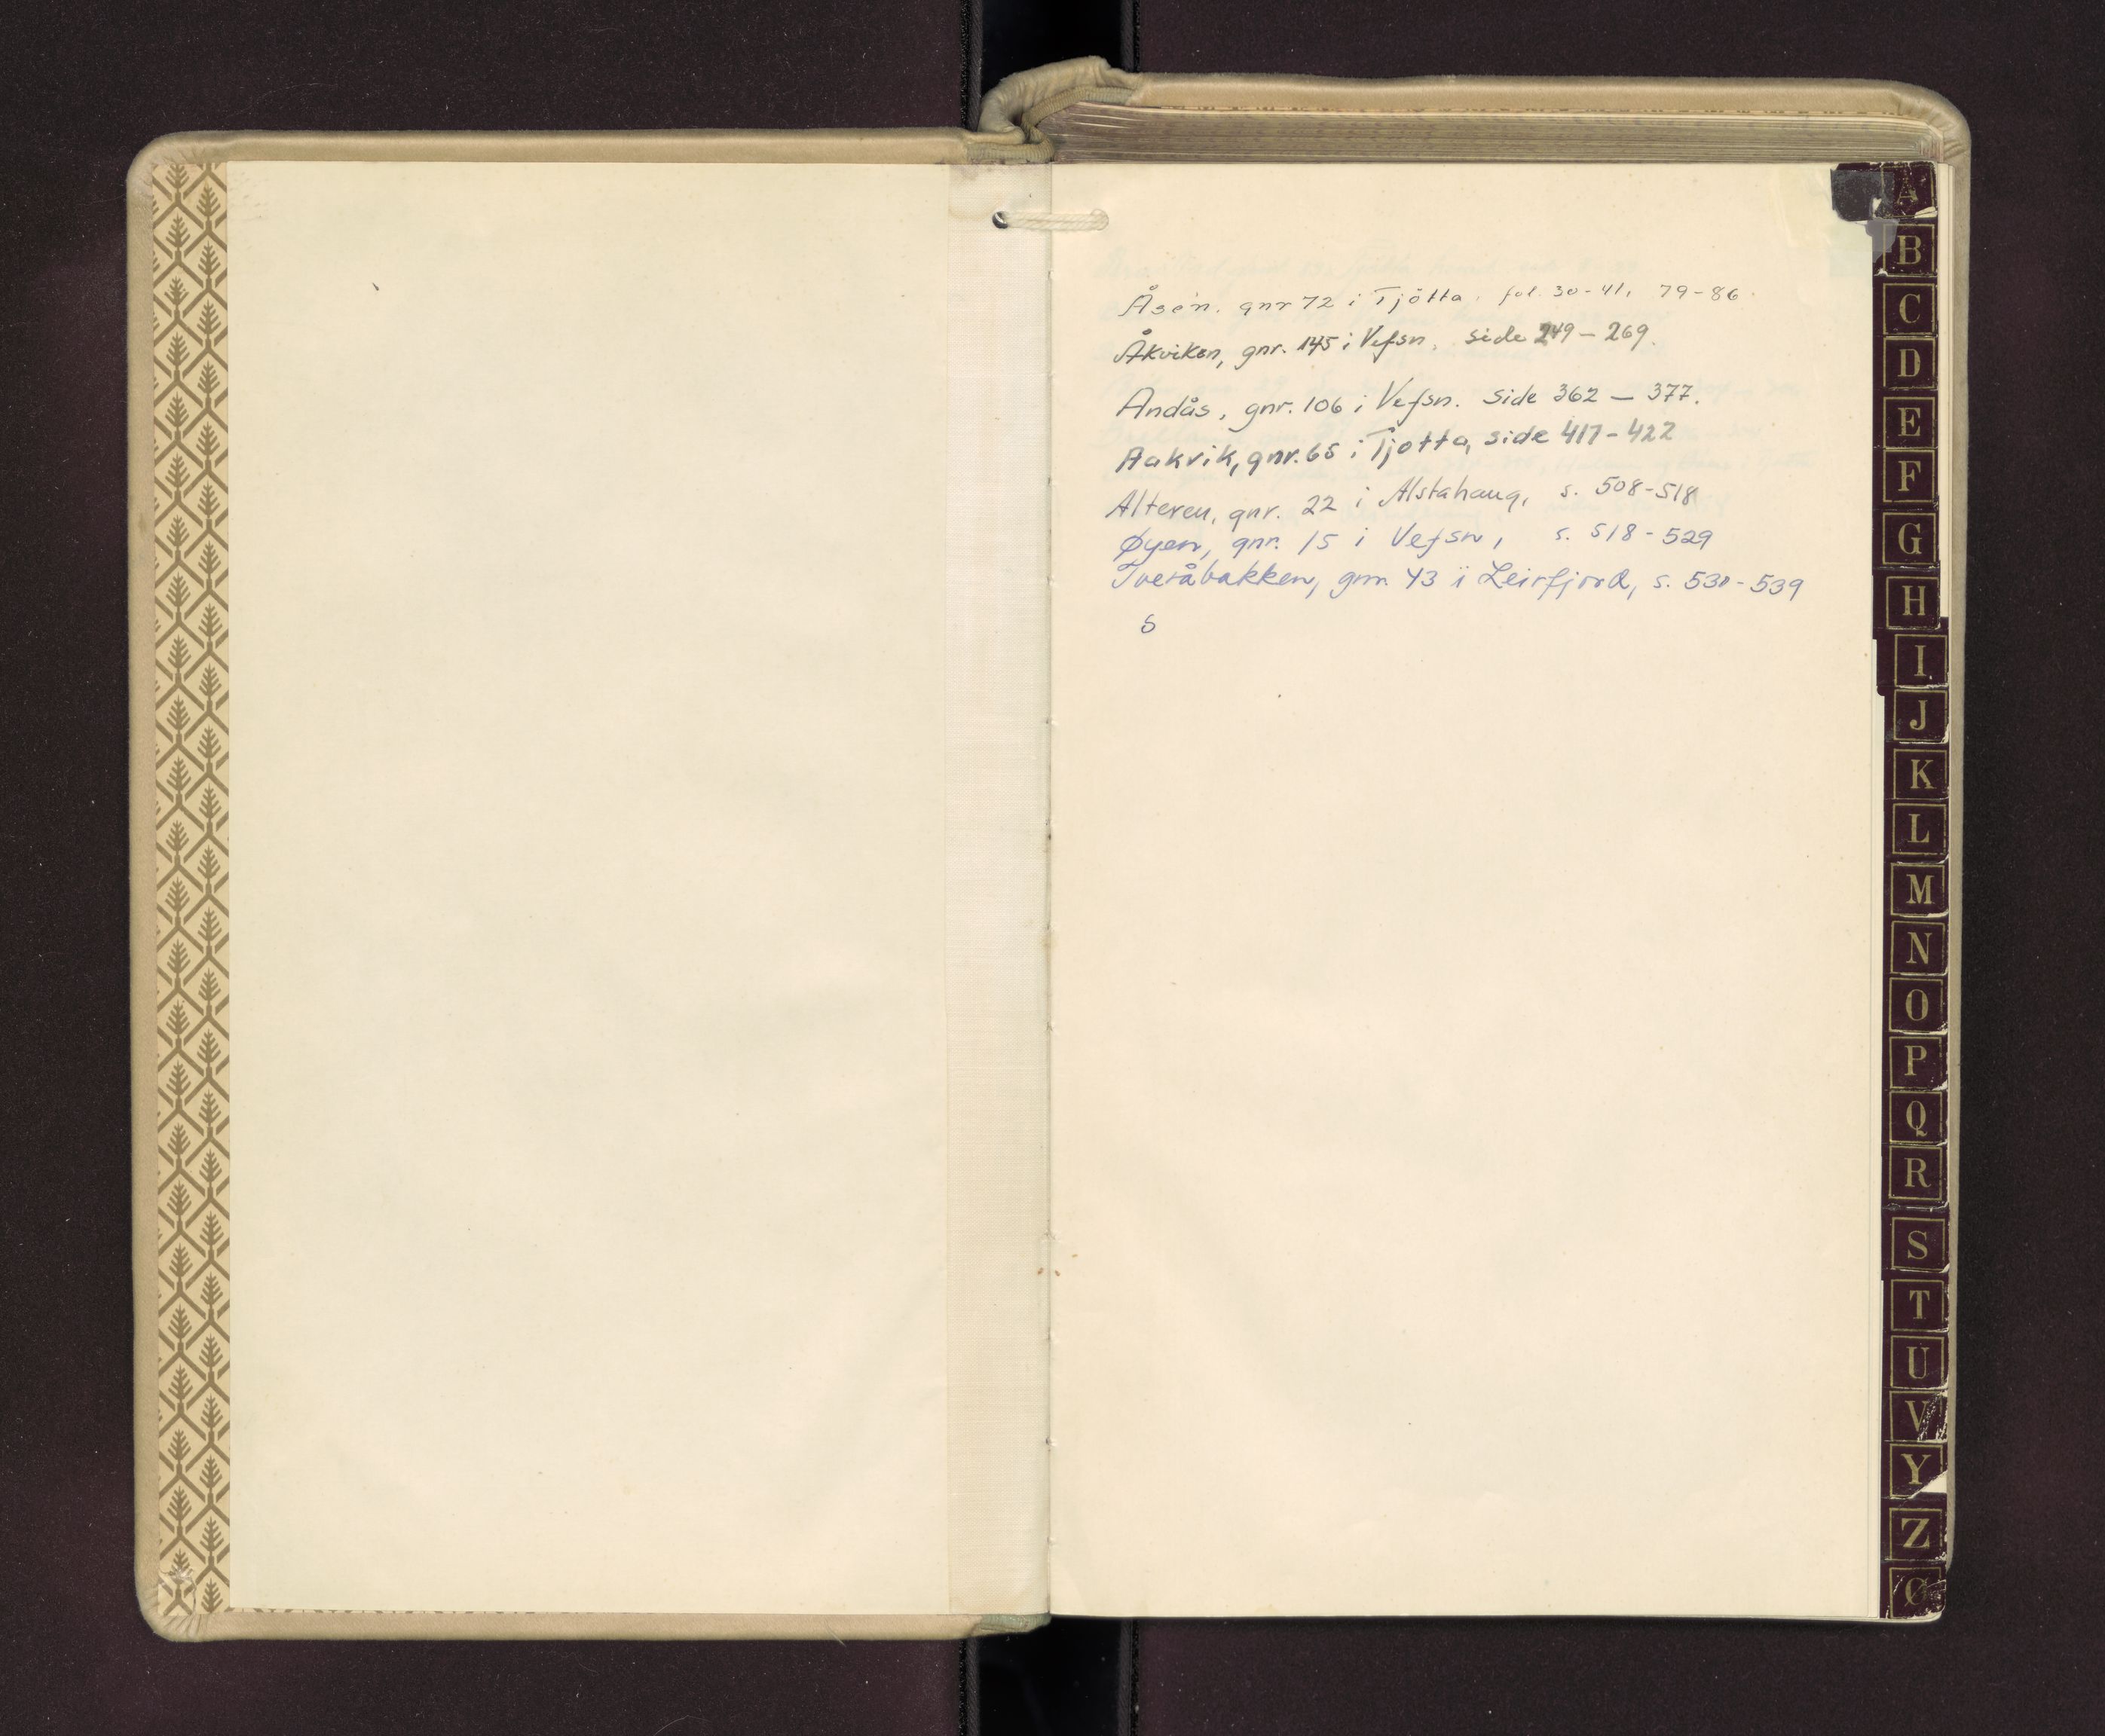 Åsen. gnr 72 i Tjötta, fol. 30-41, 79-86.
Åkviken, gnr. 145 i Vefsn, side 249 – 269.
Andås, gnr. 106 i Vefsn. side 362 – 377.
Aakvik, gnr. 65 i Tjøtta, side 417-422
Alteren, gnr. 22 i Alstahaug, s. 508-518
Øyen, gnr. 15 i Vefsn, s. 518-529
Tveråbakken, gnr. 43 i Leirfjord, s. 530-539
s
A
B
C
D
E
F
G
H
I
J
K
L
M
N
O
P
Q
R
S
T
U
V
Y
Z
Ø